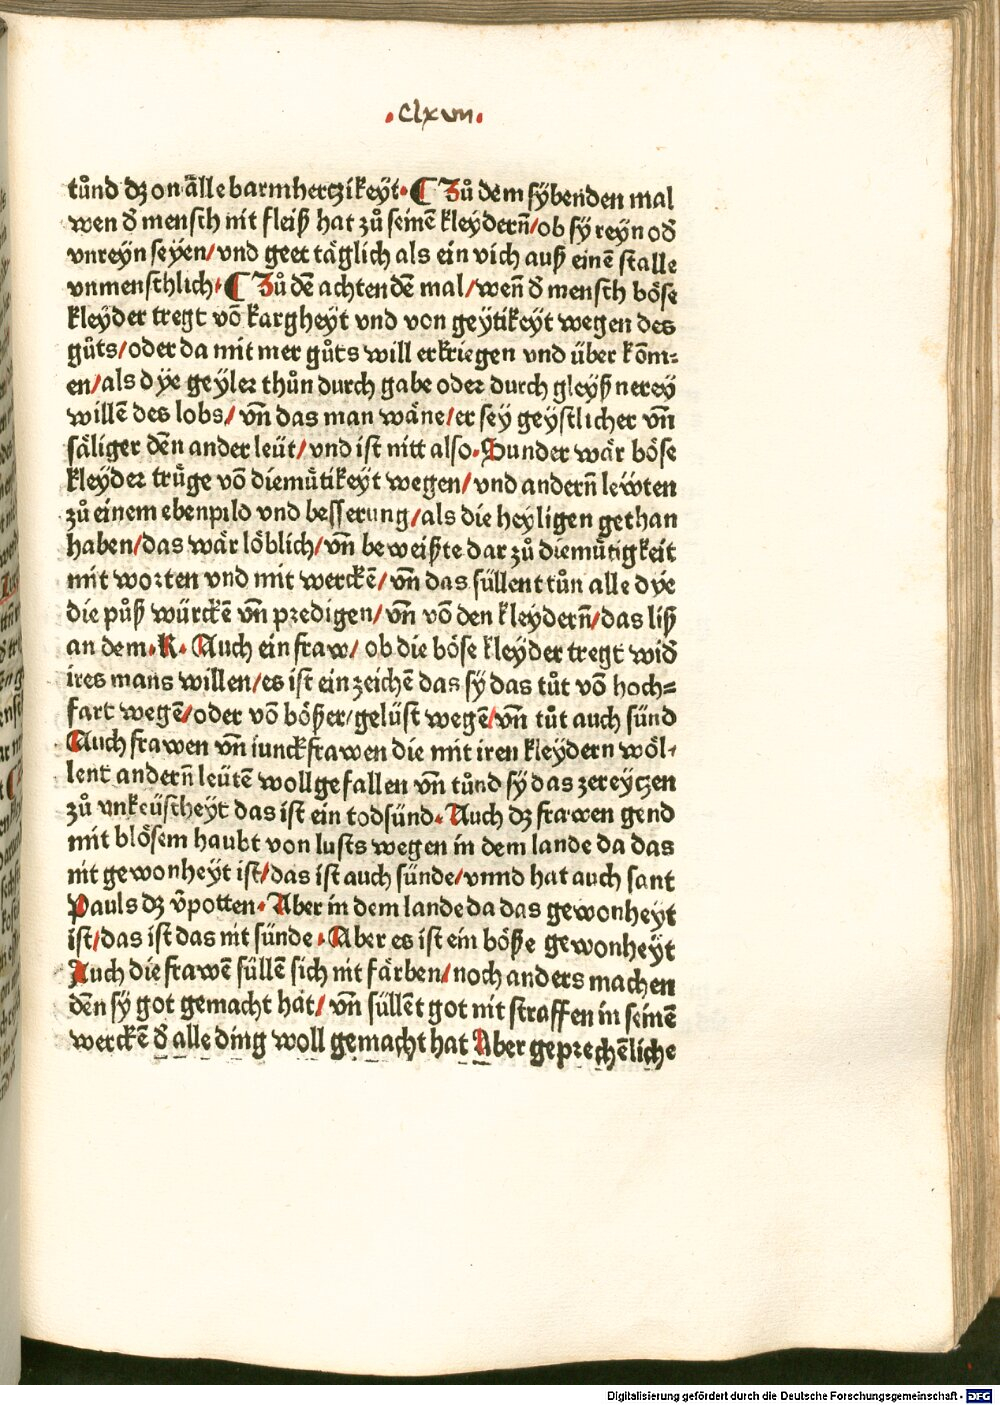 .Clxvii.
tůnd dʒ on älle barmhertzikeÿt. ¶ Zů dem sÿbenden mal
wen đ mensch nit fleiß hat zů seinē kleÿdern̄/ ob sÿ reÿn ođ
vnreÿn seÿen/ vnd geet täglich als ein vich auß einē stalle
vnmenschlich. ¶ Zů dē achten dē mal/ wen̄ đ mensch böse
kleÿder tregt vō kargheÿt vnd von geÿtikeÿt wegen des
gůts/ oder da mit mer gůts will erkriegen vnd über kōm⸗
en/ als dÿe geÿler thůn durch gabe oder durch gleÿßnereÿ
willē des lobs/ vn̄ das man wäne/ er seÿ geÿstlicher vn̄
säliger dēn ander leüt/ vnd ist nitt also. Sunder wär böse
kleÿder trüge vō diemütikeÿt wegen/ vnd andern̄ lewten
zů einem ebenpild vnd besserung/ als die heÿligen gethan
haben/ das wär löblich/ vn̄ beweißte dar zů diemütigkeit
mit worten vnd mit werckē/ vn̄ das süllent tůn alle dÿe
die půß würckē vn̄ predigen/ vn̄ vō den kleÿdern̄/ das liß
an dem. K. Auch ein fraw/ ob die böse kleÿder tregt wiđ
ires mans willen/ es ist ein zeichē das sÿ das tůt vō hoch⸗
fart wegē/ oder vō bößer/ gelüst wegē/ vn̄ tůt auch sünd
Auch frawen vn̄ iunckfrawen die mit iren kleÿdern wöl⸗
lent andern̄ leütē wollgefallen vn̄ tůnd sÿ das zereÿtzen
zů vnkeüscheÿt das ist ein todsünd. Auch dʒ frawen gend
mit blösem haubt von lusts wegen in dem lande da das
nit gewonheÿt ist/ das ist auch sünde/ vnnd hat auch sant
Pauls dʒ v̄potten. Aber in dem lande da das gewonheÿt
ist/ das ist das nit sünde. Aber es ist ein böße gewonheÿt
Auch die frawē süllē sich nit färben/ noch anders machen
dēn sÿ got gemacht hat/ vn̄ süllēt got nit straffen in seinē
werckē đ alle ding woll gemacht hat Aber geprechēliche
Digitalisierung gefördert durch die Deutsche Forschungsgemeinschaft - DFG